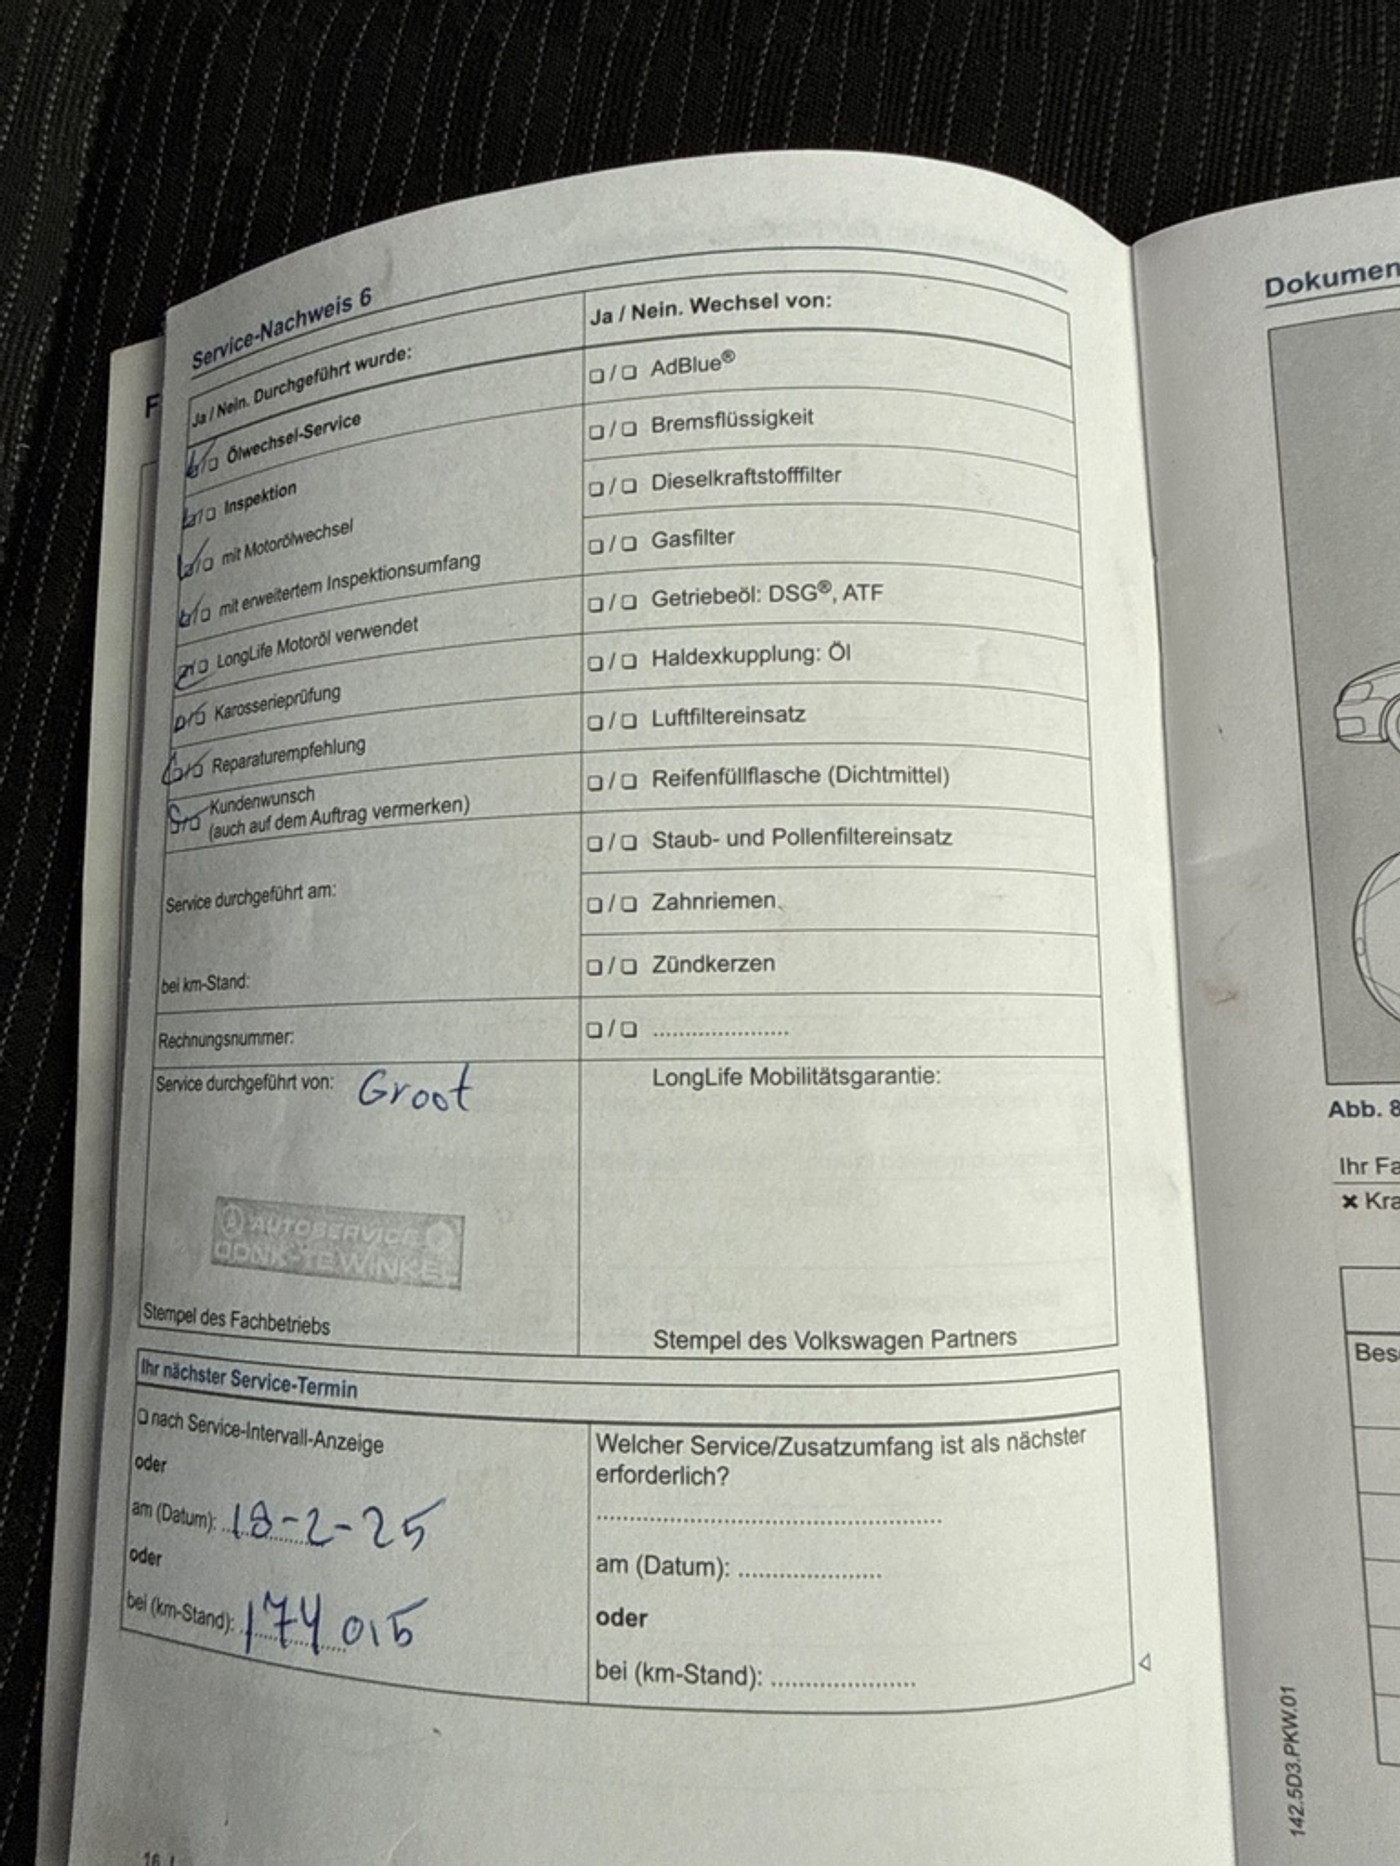 Service-Nachweis 6
Ja / Nein. Durchgeführt wurde:
Ölwechsel-Service
Inspektion
mit Motorölwechsel
mit erweitertem Inspektionsumfang
LongLife Motoröl verwendet
Karosserieprüfung
Reparaturempfehlung
Kundenwunsch
(auch auf dem Auftrag vermerken)
Service durchgeführt am:
bei km-Stand:
Rechnungsnummer:
Service durchgeführt von: Groot
AUTOSERVICE
Stempel des Fachbetriebs
Ja / Nein. Wechsel von:
☐ / ☐ AdBlue®
☐ / ☐ Bremsflüssigkeit
☐ / ☐ Dieselkraftstofffilter
☐ / ☐ Gasfilter
☐ / ☐ Getriebeöl: DSG®, ATF
☐ / ☐ Haldexkupplung: Öl
☐ / ☐ Luftfiltereinsatz
☐ / ☐ Reifenfüllflasche (Dichtmittel)
☐ / ☐ Staub- und Pollenfiltereinsatz
☐ / ☐ Zahnriemen
☐ / ☐ Zündkerzen
☐ / ☐ ......................
LongLife Mobilitätsgarantie:
Stempel des Volkswagen Partners
Ihr nächster Service-Termin
☐ nach Service-Intervall-Anzeige
oder
am (Datum): 18-2-25
oder
bei (km-Stand): 174 015
Welcher Service/Zusatzumfang ist als nächster
erforderlich?
am (Datum): ......................
oder
bei (km-Stand): ......................
16
Dokumen
Abb. 8
Ihr Fa
✖ Kra
Bes
142.5D3.PKW.01